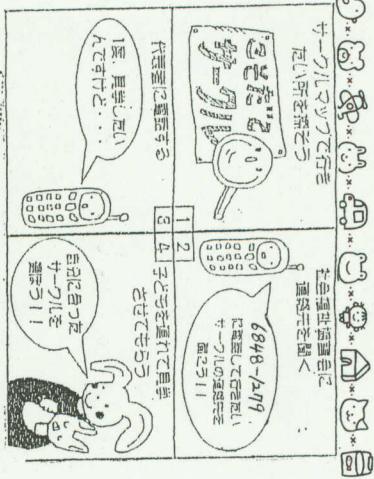 サークルマップで行き
たい所を探そう
こそだて
サークル
社会福祉協議会に
連絡先を聞く
6848-1279
に電話して行きたい
サークルの連絡先を
聞こう!!
1 2
3 4
代表者に電話する
1度、見学したい
んですけど・・・
子どもを連れて見学
させてもらう
自分に合った
サークルを
選ぼう!!